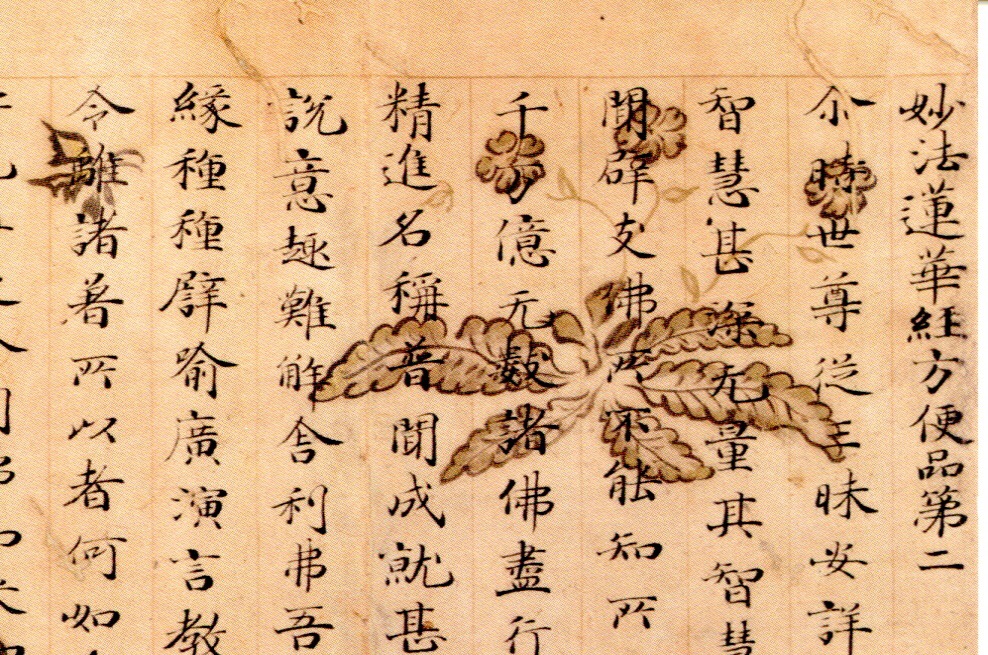 妙法蓮華経方便品第二
尒時世尊從三昧安詳
智慧甚深无量其智慧
聞辟支佛所不能知所
千万億无數諸佛盡行
精進名稱普聞成就甚
說意趣難解舍利弗吾
緣種種譬喻廣演言教
令離諸著所以者何如